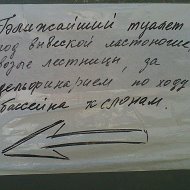 Ближайший туалет
под вывеской ластоногие
возле лестницы, за
дельфинарием по ходу
бассейна к слонам.